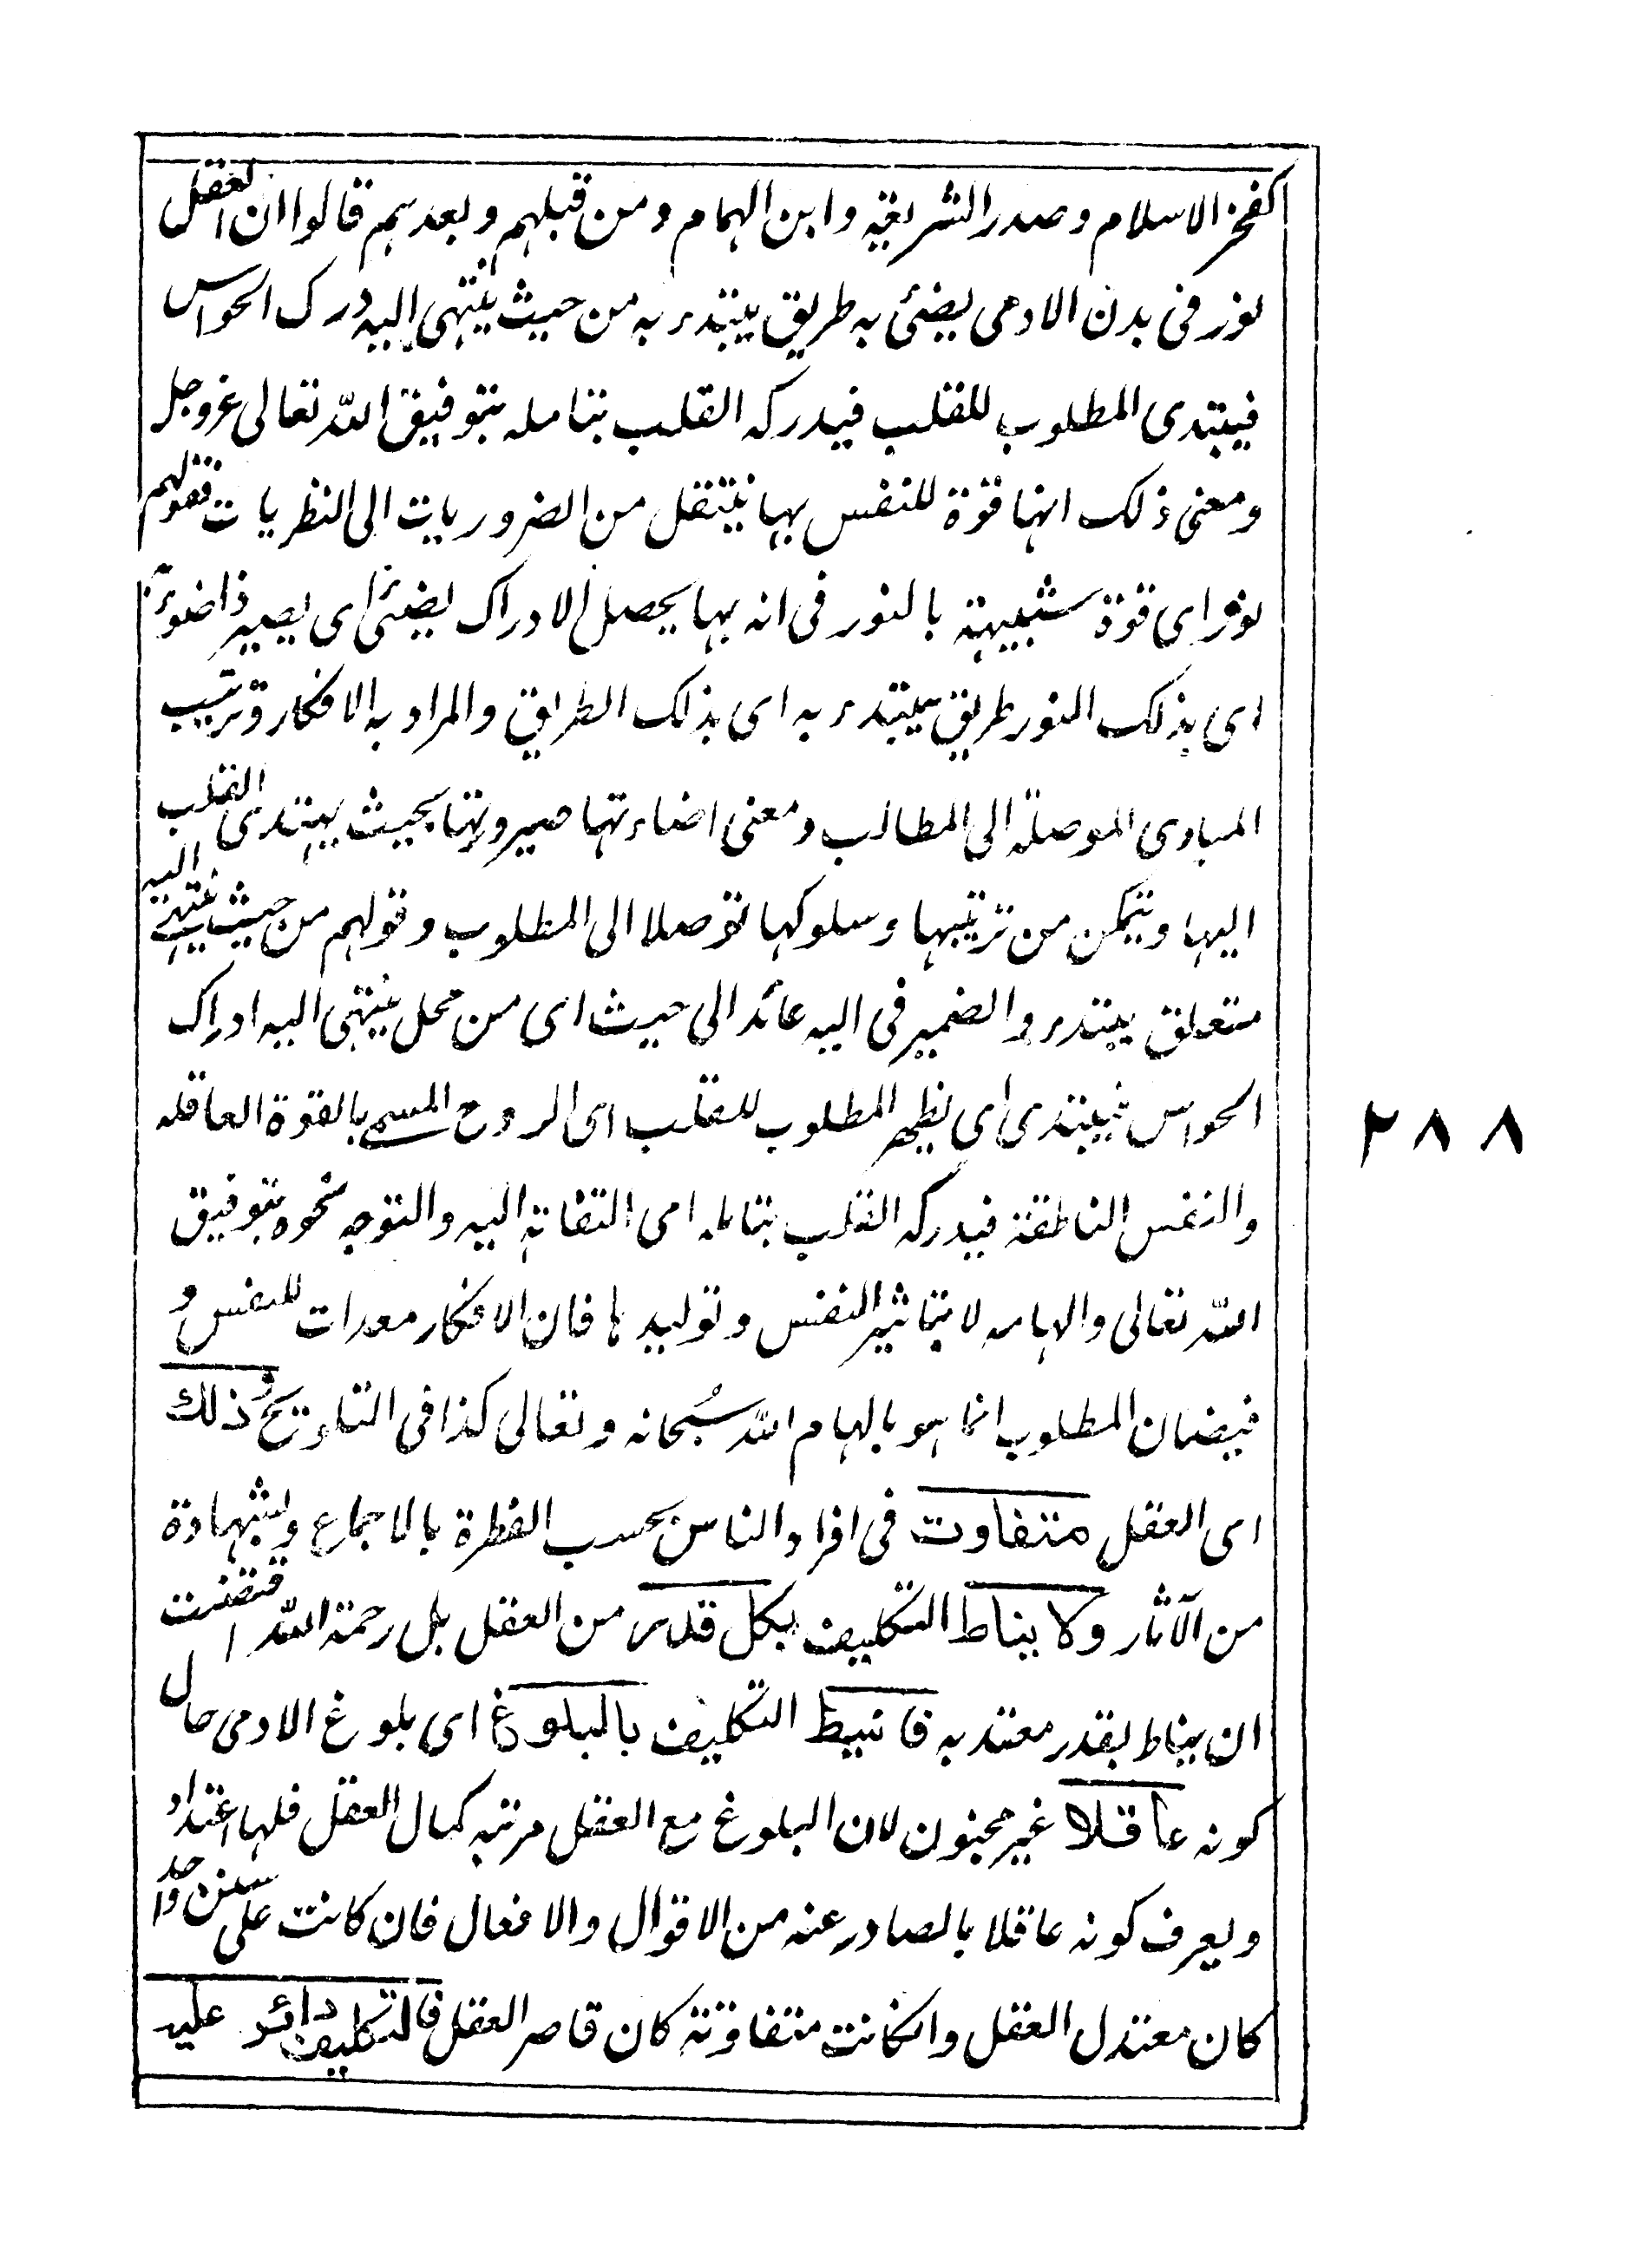 كفخر الاسلام وصدر الشريعة وابن الهمام ومن قبلهم وبعدهم قالوا ان العقل
نور فى بدن الادمى يضئى به طريق يبتدء به من حيث ينتهى اليه درك الحواس
فيبتدى المطلوب للقلب فيدركه القلب بتامله بتوفيق الله تعالى عزوجل
ومعنى ذلك انها قوة للنفس بها ينتقل من الضروريات الى النظريات فقولهم
نور اى قوة شبيهة بالنور فى انه بها يحصل الادراك يضئى اى يصير ذا ضوء به
اى بذلك النور طريق يبتدء به اى بذلك الطريق والمراد به الافكار وترتيب
المبادى الموصلة الى المطالب ومعنى اضاءتها صيرورتها بحيث يهتدى القلب
اليها ويتمكن من ترتيبها وسلوكها توصلا الى المطلوب وقولهم من حيث ينتهى اليه
متعلق يبتدء والضمير فى اليه عائد الى حيث اى من محل ينتهى اليه ادراك
الحواس فيبتدى اى يظهر المطلوب للقلب اى الروح المسمى بالقوة العاقله
والنفس الناطقة فيدركه القلب بتامله اى التفاته اليه والتوجه نحوه بتوفيق
الله تعالى والهامه لا بتاثير النفس وتوليدها فان الافكار معدات للنفس و
فيضان المطلوب انما هو بالهام الله سبحانه وتعالى كذا فى التلويح وذلك
اى العقل متفاوت فى افراد الناس بحسب الفطرة بالاجماع وبشهادة
من الآثار ولا يناط التكليف بكل قدر من العقل بل رحمة الله اقتضت
ان يناط بقدر معتد به فانيط التكليف بالبلوغ اى بلوغ الادمى حال
كونه عاقلا غير مجنون لان البلوغ مع العقل مرتبه كمال العقل فلها اعتداد
ويعرف كونه عاقلا بالصادر عنه من الاقوال والافعال فان كانت على سنن واحد
كان معتدل العقل وانكانت متفاوتة كان قاصر العقل فالتكليف دائر عليه
٢٨٨